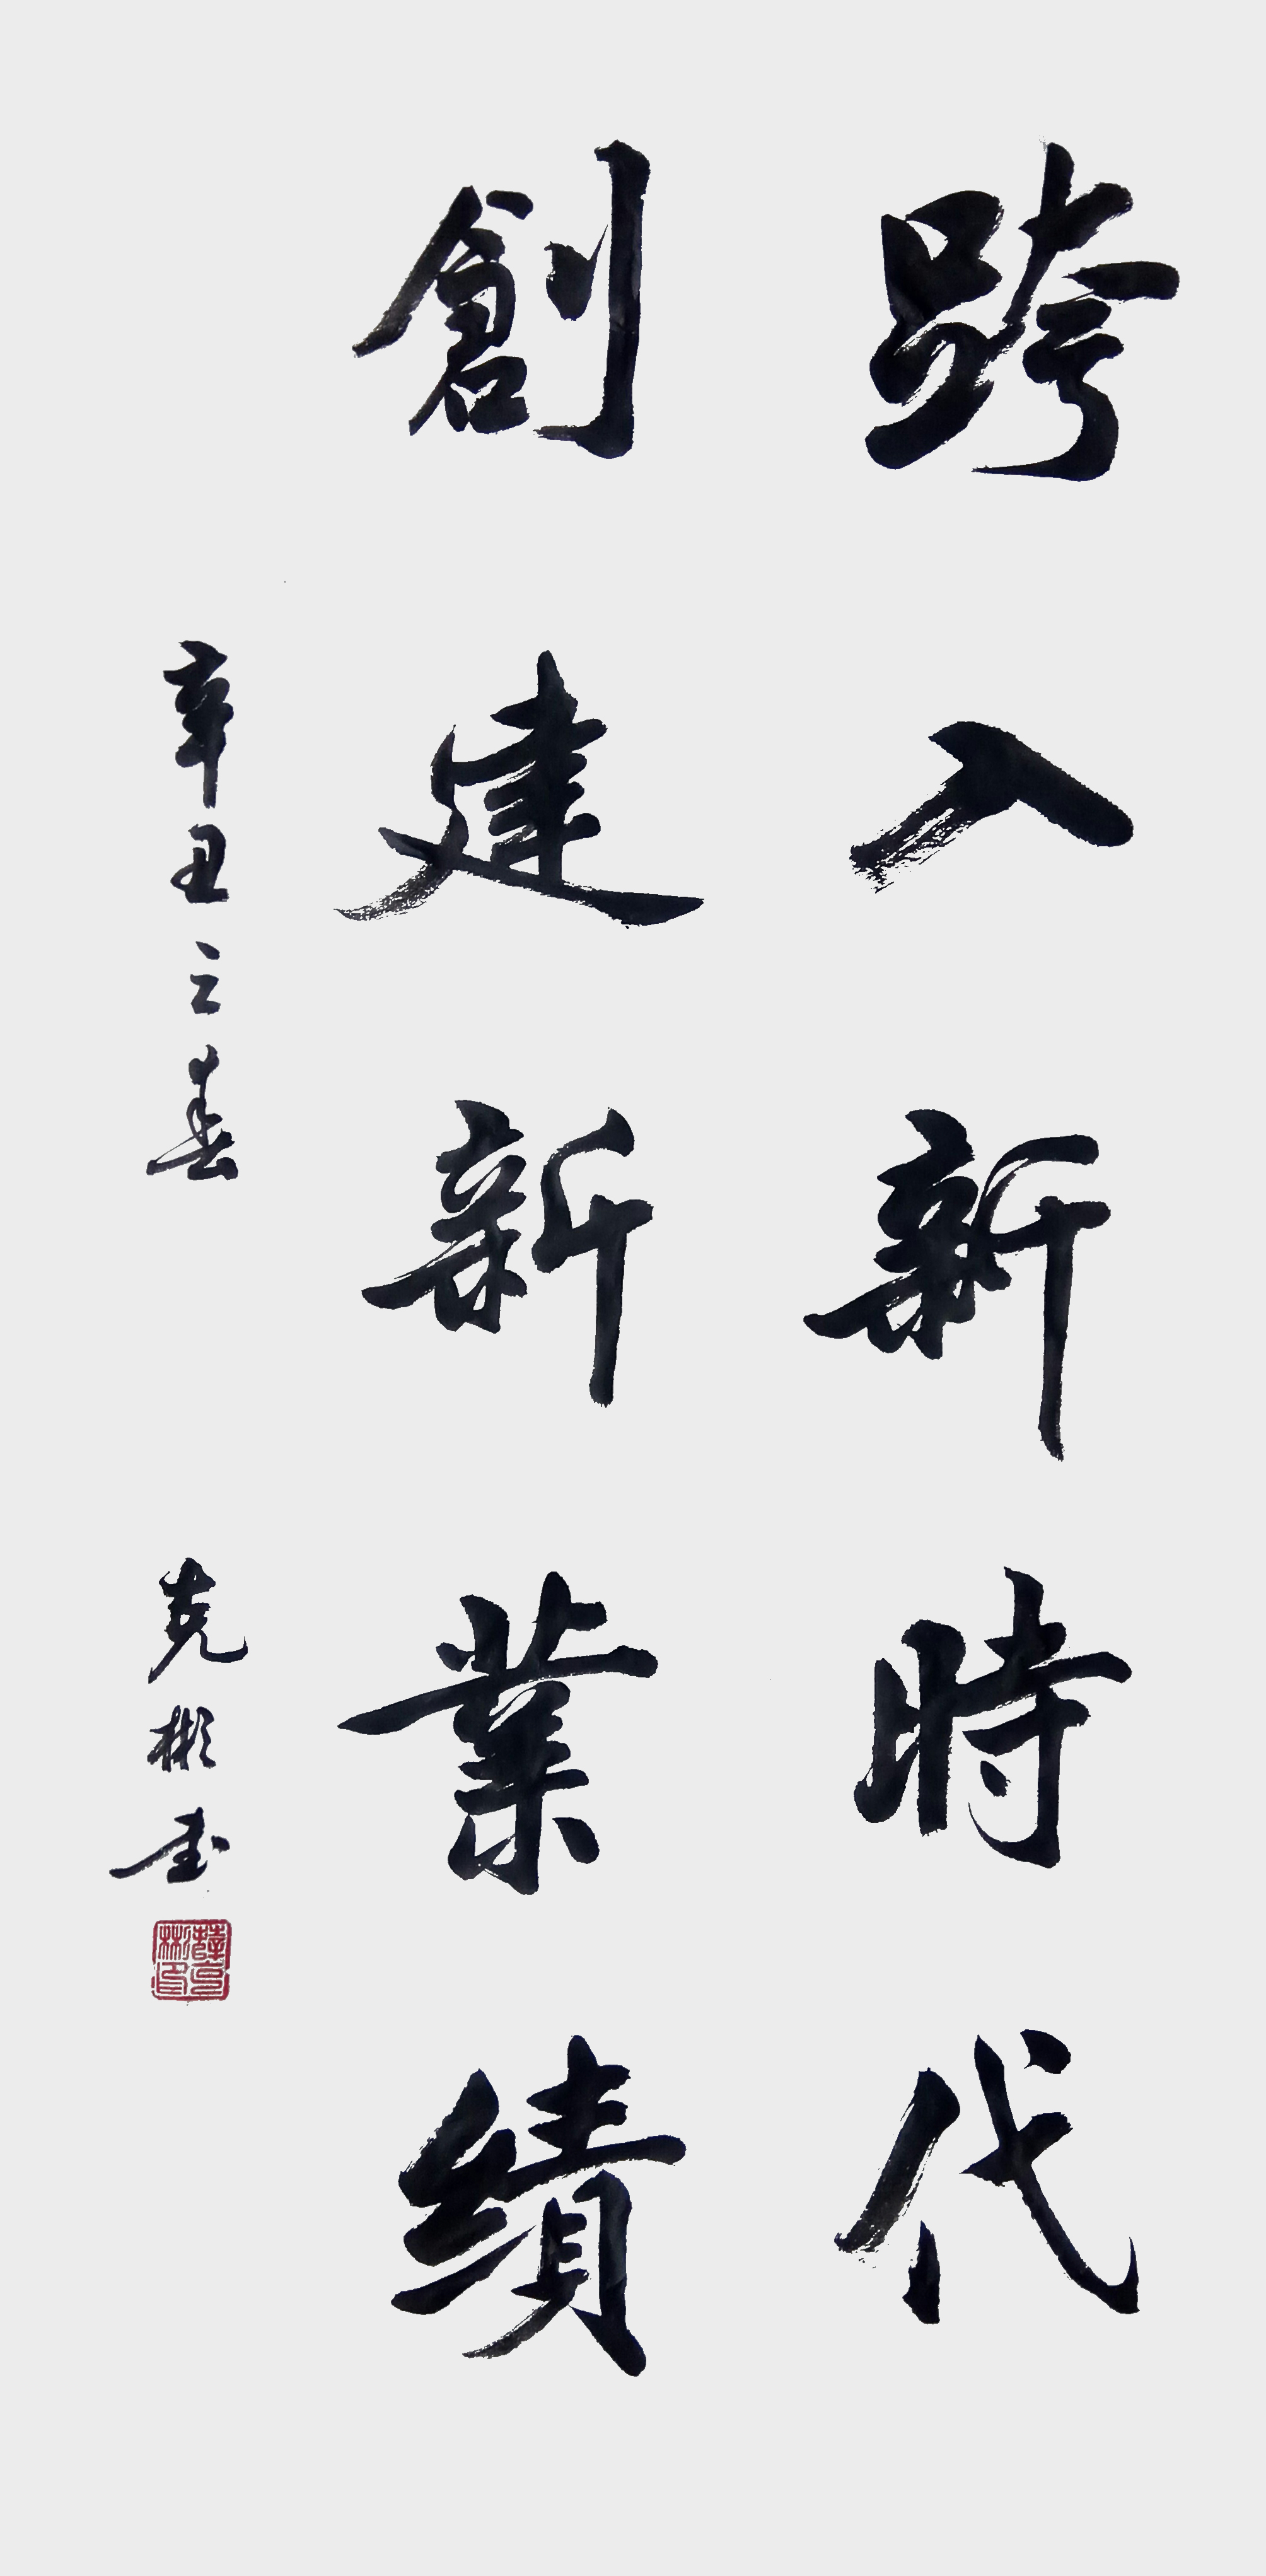 跨入新時代
創建新業績
辛丑之春 克彬書